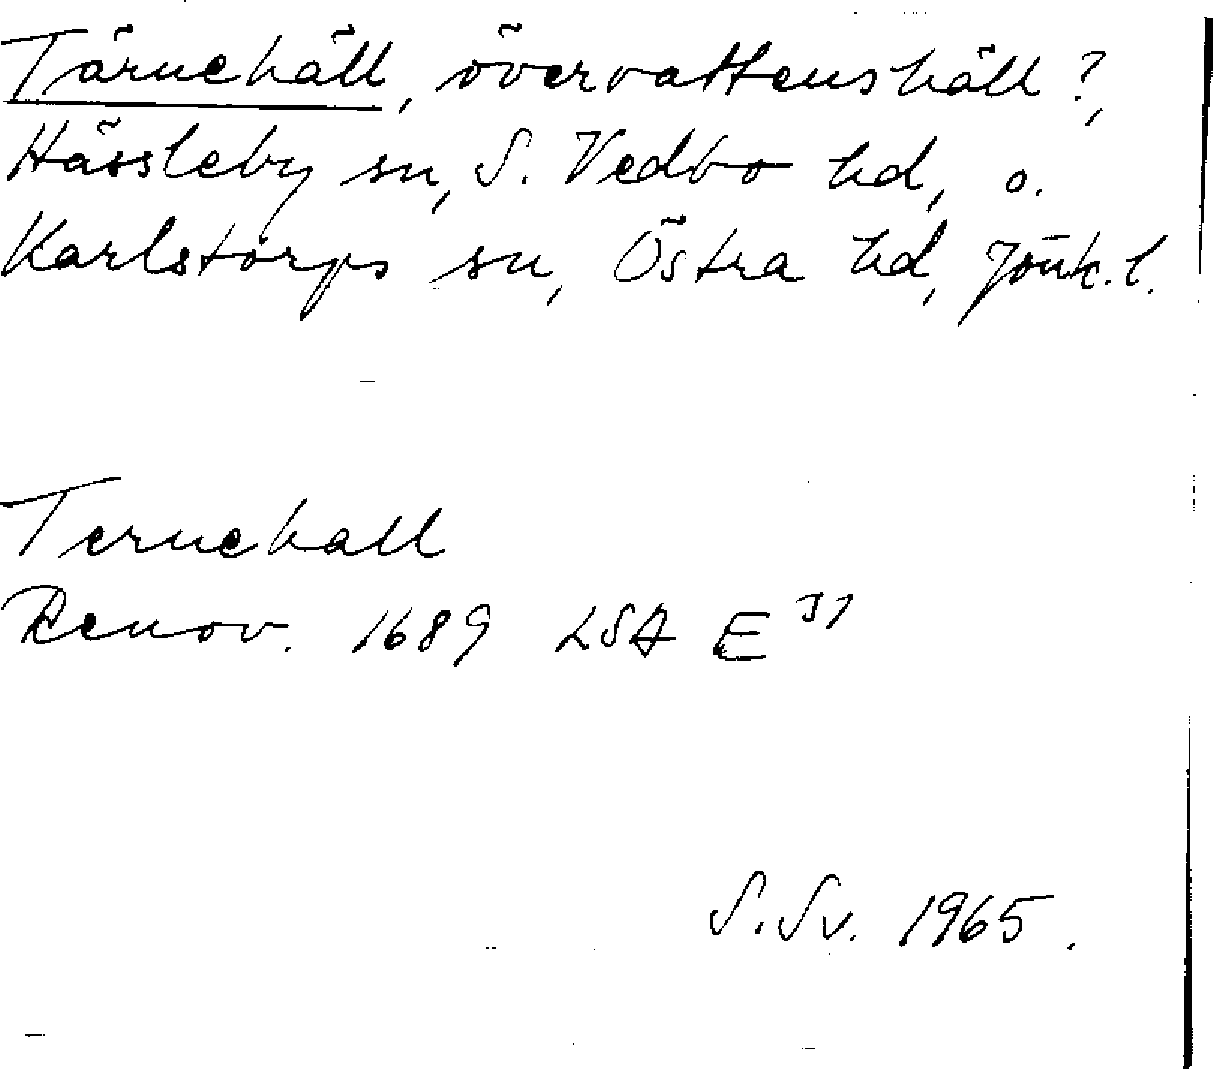 Tärnehäll, övervattenshäll?,
Hässleby sn, S. Vedbo hd, o.
Karlstorps sn, Östra hd, Jönk. l.
Ternehall
Renov. 1689 LSA E 31
S. Sv. 1965.